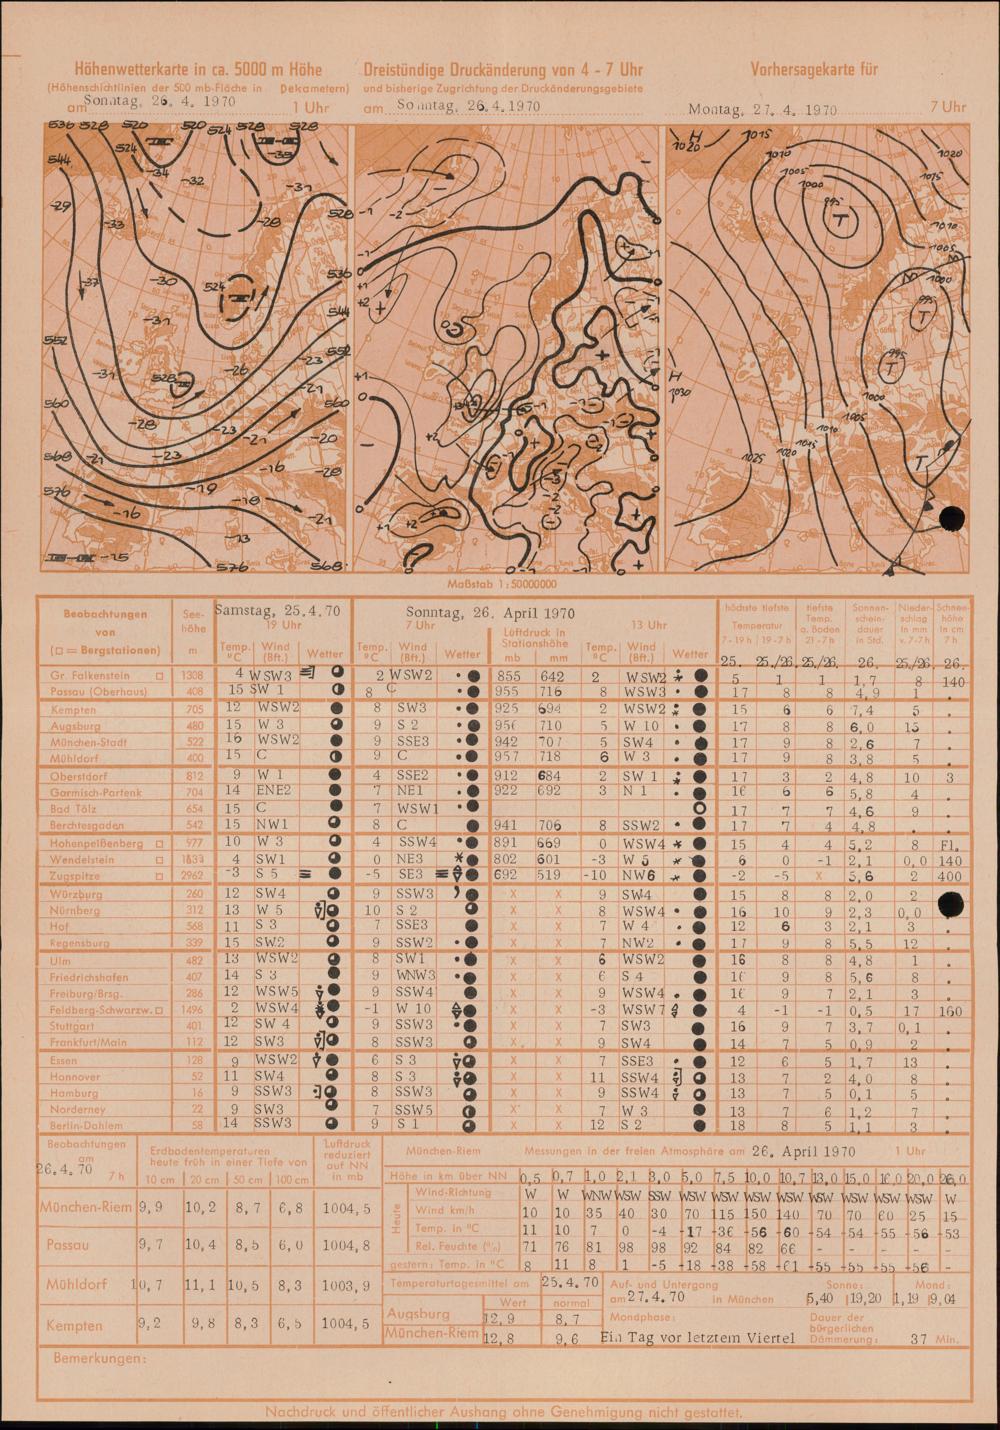 Höhenwetterkarte in ca. 5000 m Höhe
(Höhenschichtlinien der 500 mb-Fläche in Dekametern)
am Sonntag, 26. 4. 1970 1 Uhr
Dreistündige Druckänderung von 4 - 7 Uhr
und bisherige Zugrichtung der Druckänderungsgebiete
am Sonntag, 26.4.1970
Vorhersagekarte für
Montag, 27. 4. 1970 7 Uhr
536 528 520 520 524 528 528
544 524 -34 -32 -31
-29 -33 -28 528
-37 -30 524 536
-31 544
552 528 -26 -23 552
560 -28 -23 -21 -21 560
568 -21 -23 -16 -20
576 -19 -28
-16 -18 -21
-13
-15 576 568
H 1020 1015 1010 1005 1000 995 T 1020 1015 1010 1005 1000
995 T
995 T
H 1030 1000 1005 1010 1015 1020 1025
T
Maßstab 1:50000000
Beobachtungen von (□ = Bergstationen) Seehöhe m Samstag, 25.4.70 19 Uhr Sonntag, 26. April 1970 7 Uhr 13 Uhr
Temp. °C Wind (Bft.) Wetter Temp. °C Wind (Bft.) Wetter Luftdruck in Stationshöhe mb mm Temp. °C Wind (Bft.) Wetter
höchste tiefste Temperatur 7-19 h 19-7 h tiefste Temp. a. Boden 21-7 h Sonnenscheindauer in Std. Niederschlag in mm v. 7-7 h Schneehöhe in cm 7 h
25. 25./26. 25./26. 26. 25./26. 26.
Gr. Falkenstein □ 1308 4 WSW3 2 WSW2 855 642 2 WSW2 5 1 1 1,7 8 140
Passau (Oberhaus) 408 15 SW 1 8 C 955 716 8 WSW3 17 8 8 4,9 1 .
Kempten 705 12 WSW2 8 SW3 925 694 2 WSW2 15 6 6 7,4 5 .
Augsburg 480 15 W 3 9 S 2 950 710 5 W 10 17 8 8 6,0 15 .
München-Stadt 522 16 WSW2 9 SSE3 942 707 5 SW4 17 9 8 2,6 7 .
Mühldorf 400 15 C 9 C 957 718 6 W 3 17 9 8 3,8 5 .
Oberstdorf 812 9 W 1 4 SSE2 912 684 2 SW 1 17 3 2 4,8 10 3
Garmisch-Partenk 704 14 ENE2 7 NE1 922 692 3 N 1 16 6 6 5,8 4 .
Bad Tölz 654 15 C 7 WSW1 17 7 7 4,6 9 .
Berchtesgaden 542 15 NW1 8 C 941 706 8 SSW2 17 7 4 4,8 .
Hohenpeißenberg □ 977 10 W 3 4 SSW4 891 669 0 WSW4 15 4 4 5,2 8 Fl.
Wendelstein □ 1833 4 SW1 0 NE3 802 601 -3 W 5 6 0 -1 2,1 0,0 140
Zugspitze □ 2962 -3 S 5 -5 SE3 692 519 -10 NW6 -2 -5 x 5,6 2 400
Würzburg 260 12 SW4 9 SSW3 x x 9 SW4 15 8 8 2,0 2
Nürnberg 312 13 W 5 10 S 2 x x 8 WSW4 16 10 9 2,3 0,0
Hof 568 11 S 3 7 SSE3 x x 7 W 4 12 6 3 2,1 3 .
Regensburg 339 15 SW2 9 SSW2 x x 7 NW2 17 9 8 5,5 12 .
Ulm 482 13 WSW2 8 SW1 x x 6 WSW2 16 8 8 4,8 1 .
Friedrichshafen 407 14 S 3 9 WNW3 x x 6 S 4 16 9 8 5,6 8 .
Freiburg/Brsg. 286 12 WSW5 9 SSW4 x x 9 WSW4 16 9 7 2,1 3 .
Feldberg-Schwarzw. □ 1496 2 WSW4 -1 W 10 x x -3 WSW7 4 -1 -1 0,5 17 160
Stuttgart 401 12 SW 4 9 SSW3 x x 7 SW3 16 9 7 3,7 0,1 .
Frankfurt/Main 112 12 SW3 8 SSW3 x x 9 SW4 14 7 5 0,9 2 .
Essen 128 9 WSW2 6 S 3 x x 7 SSE3 12 6 5 1,7 13 .
Hannover 52 11 SW4 8 S 3 x x 11 SSW4 13 7 2 4,0 8 .
Hamburg 16 9 SSW3 8 SSW3 x x 9 SSW4 13 7 5 0,1 5 .
Norderney 22 9 SW3 7 SSW5 x x 7 W 3 13 7 6 1,2 7 .
Berlin-Dahlem 58 14 SSW3 9 S 1 x x 12 S 2 18 8 5 1,1 3 .
Beobachtungen am 26.4.70 7 h
Erdbodentemperaturen heute früh in einer Tiefe von 10 cm 20 cm 50 cm 100 cm
Luftdruck reduziert auf NN in mb
München-Riem 9,9 10,2 8,7 6,8 1004,5
Passau 9,7 10,4 8,5 6,0 1004,8
Mühldorf 10,7 11,1 10,5 8,3 1003,9
Kempten 9,2 9,8 8,3 6,5 1004,5
München-Riem Messungen in der freien Atmosphäre am 26. April 1970 1 Uhr
Höhe in km über NN 0,5 0,7 1,0 2,1 3,0 5,0 7,5 10,0 10,7 13,0 15,0 16,0 20,0 26,0
Heute
Wind-Richtung W W WNW WSW SSW WSW WSW WSW WSW WSW WSW WSW WSW W
Wind km/h 10 10 35 40 30 70 115 150 140 70 70 60 25 15
Temp. in °C 11 10 7 0 -4 -17 -36 -56 -60 -54 -54 -55 -56 -53
Rel. Feuchte (%) 71 76 81 98 98 92 84 82 66 - - - - -
gestern: Temp. in °C 8 11 8 1 -5 -18 -38 -58 -61 -55 -55 -55 -56 -
Temperaturtagesmittel am 25.4.70
Wert normal
Augsburg 12,9 8,7
München-Riem 12,8 9,6
Auf- und Untergang am 27.4.70 in München Sonne: 5,40 19,20 Mond: 1,19 9,04
Mondphase: Ein Tag vor letztem Viertel
Dauer der bürgerlichen Dämmerung: 37 Min.
Bemerkungen:
Nachdruck und öffentlicher Aushang ohne Genehmigung nicht gestattet.